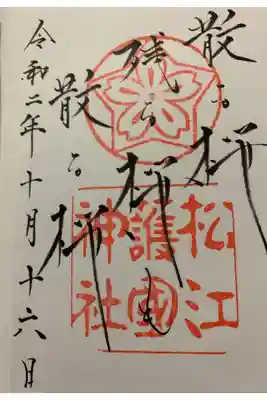 散る桜
残る桜も
散る桜
松江
護國
神社
令和二年十月十六日